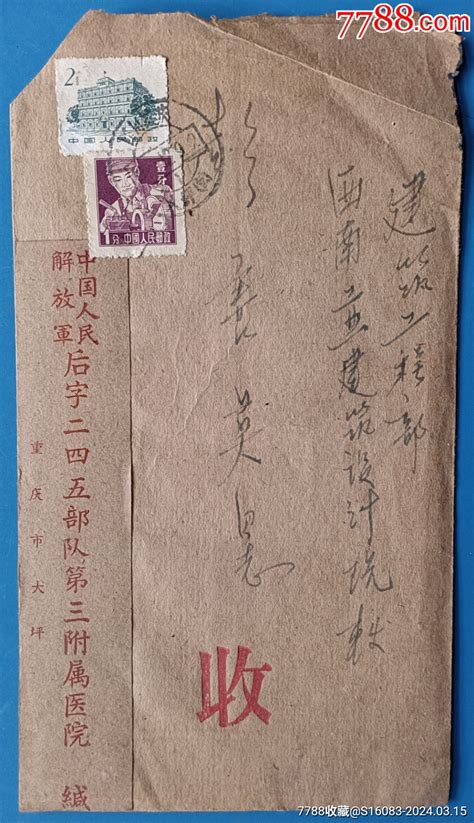 7788.com
2分
中国人民邮政
壹分
1分 中国人民邮政
建筑工程部
西南工业建筑设计院
英同志
收
中国人民
解放軍
后字二四五部队第三附属医院 缄
重庆市大坪
7788收藏@S16083-2024.03.15